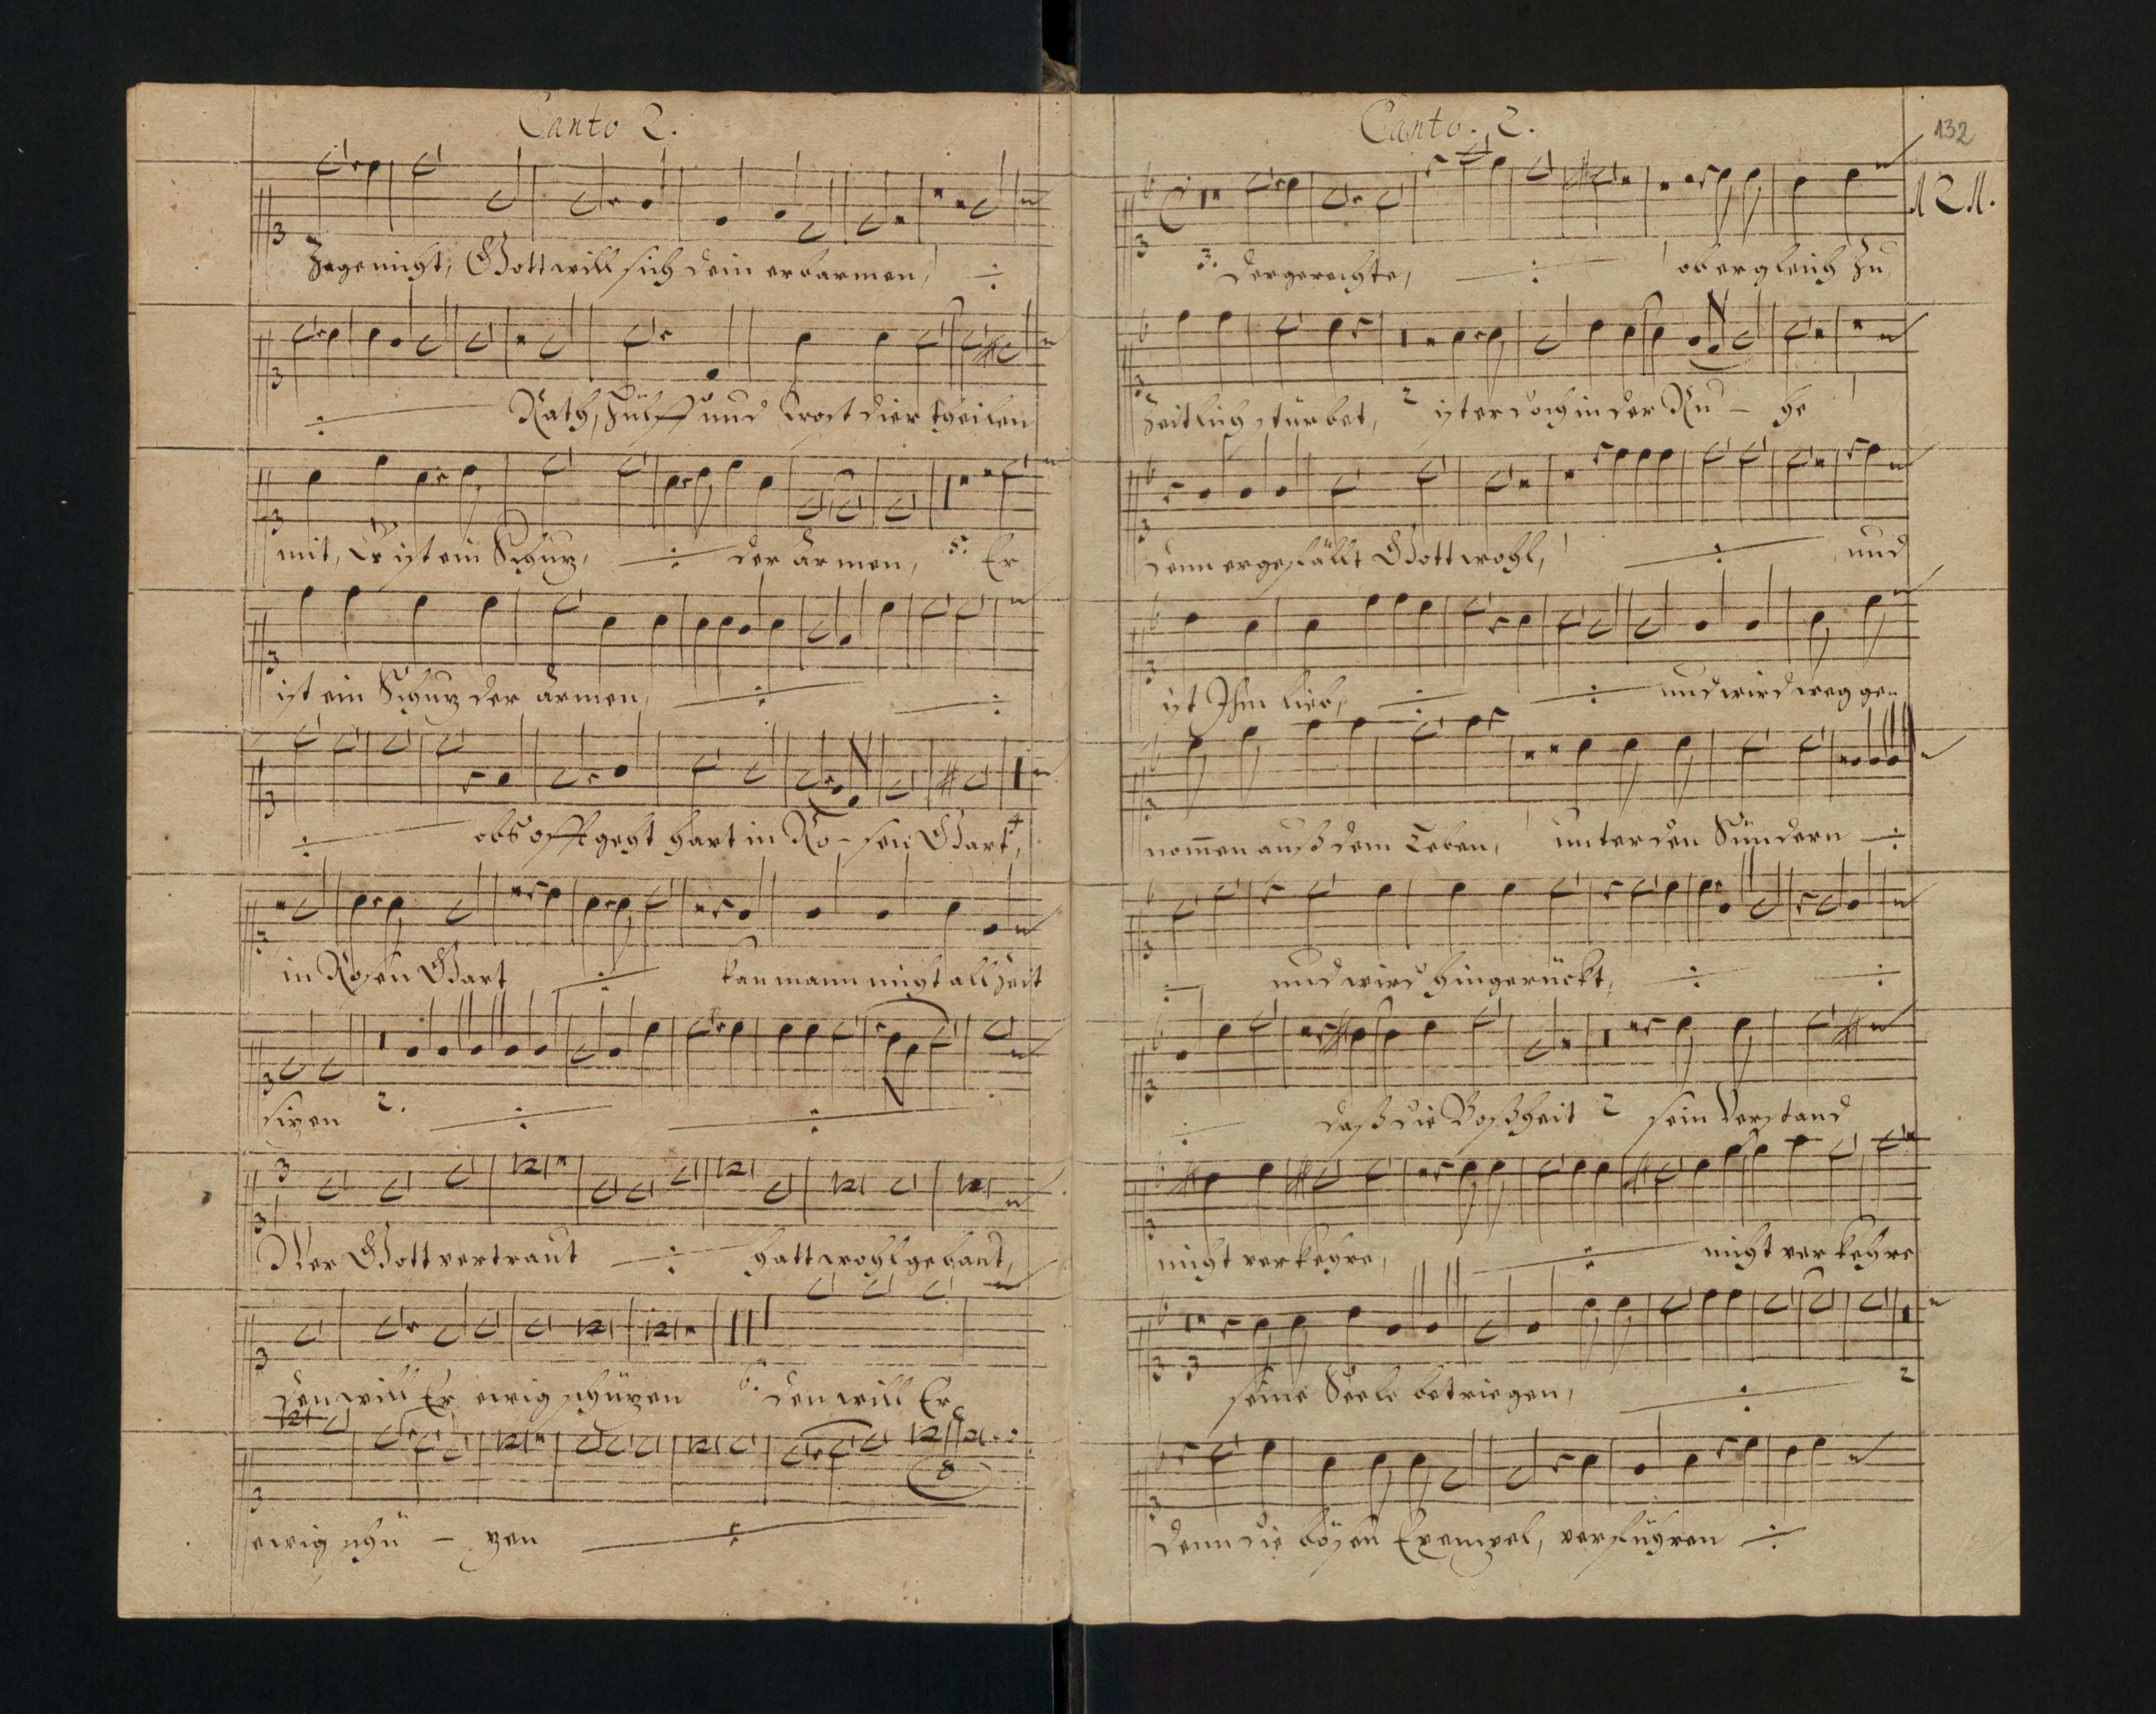 Canto 2.
Zage nicht, Gott will sich dein erbarmen,
Rath, Hülff und Trost dier theilen
mit, Er ist ein Schuz, der armen, 5. Er
ist ein Schuz der armen,
obs offt geht hart in Ro - sen Gart,
in Rosen Gart kan mann nicht all Zeit
sizen 2.
3
Wer Gott vertraut hatt wohl gebaut,
den will Er ewig schüzen 6. den will Er
ewig schü - zen
Canto. 2.
132
121.
3. Der gerechte, ob er gleich zu
Zeitlich stürbet, 2 ist er doch in der Ru - he
denn er gefällt Gott wohl, und
ist Ihm lieb, und wird weg ge=
nom̅en auß dem Leben, unter den Sündern
und wird hingerückt,
daß die Boßheit 2 sein Verstand
nicht verkehre, nicht verkehre
3 seine Seele betriegen, 2
denn die bösen Exempel, verführen